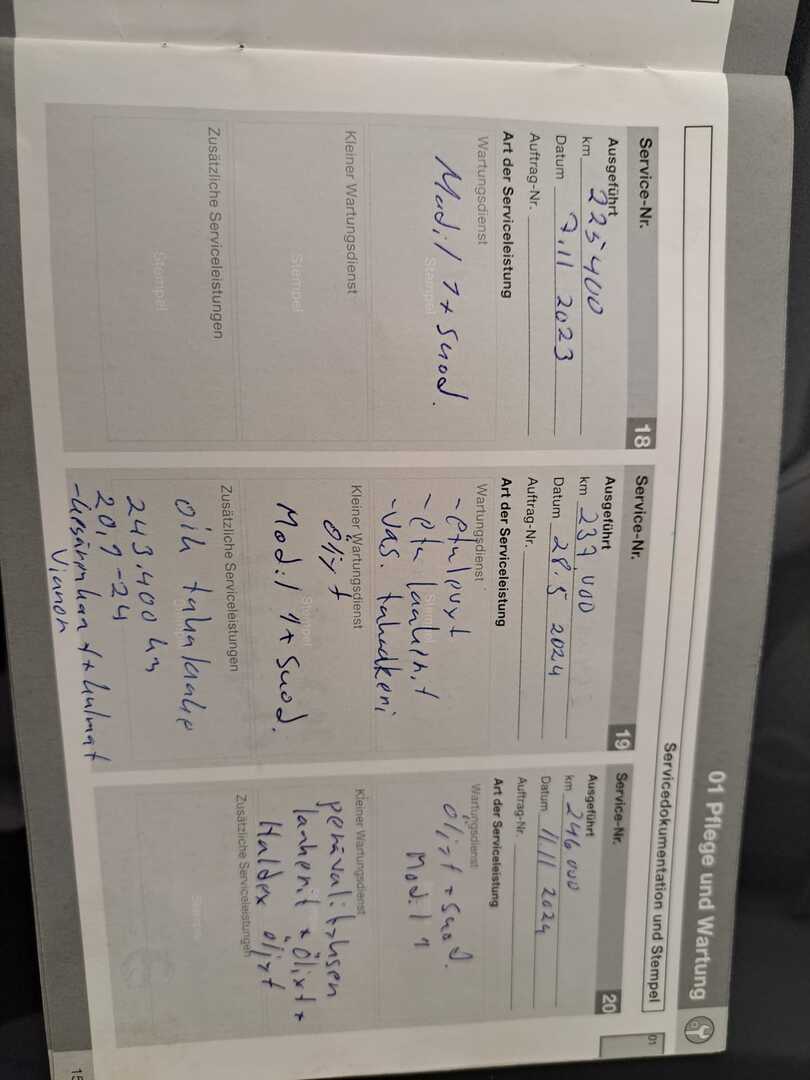 01 Pflege und Wartung
Servicedokumentation und Stempel
01
Service-Nr. 18
Ausgeführt
km 225 400
Datum 7.11 2023
Auftrag-Nr.
Art der Serviceleistung
Wartungsdienst
Stempel
Mobil 1 + Suod.
Kleiner Wartungsdienst
Stempel
Zusätzliche Serviceleistungen
Stempel
Service-Nr. 19
Ausgeführt
km 237.000
Datum 28.5 2024
Auftrag-Nr.
Art der Serviceleistung
Wartungsdienst
- etulevyt
- etu laakerit
- vas. takadkeni
Kleiner Wartungsdienst
öljyt
Mobil 1 + Suod.
Zusätzliche Serviceleistungen
oik takalaake
243.400 km
20.9 - 24
Vianon
Service-Nr. 20
Ausgeführt
km 246 000
Datum 11.11 2024
Auftrag-Nr.
Art der Serviceleistung
Wartungsdienst
öljyt + Suod.
Mobil 1
Kleiner Wartungsdienst
perävälityksen
laakerit + öljyt +
Haldex öljyt
Zusätzliche Serviceleistungen
15